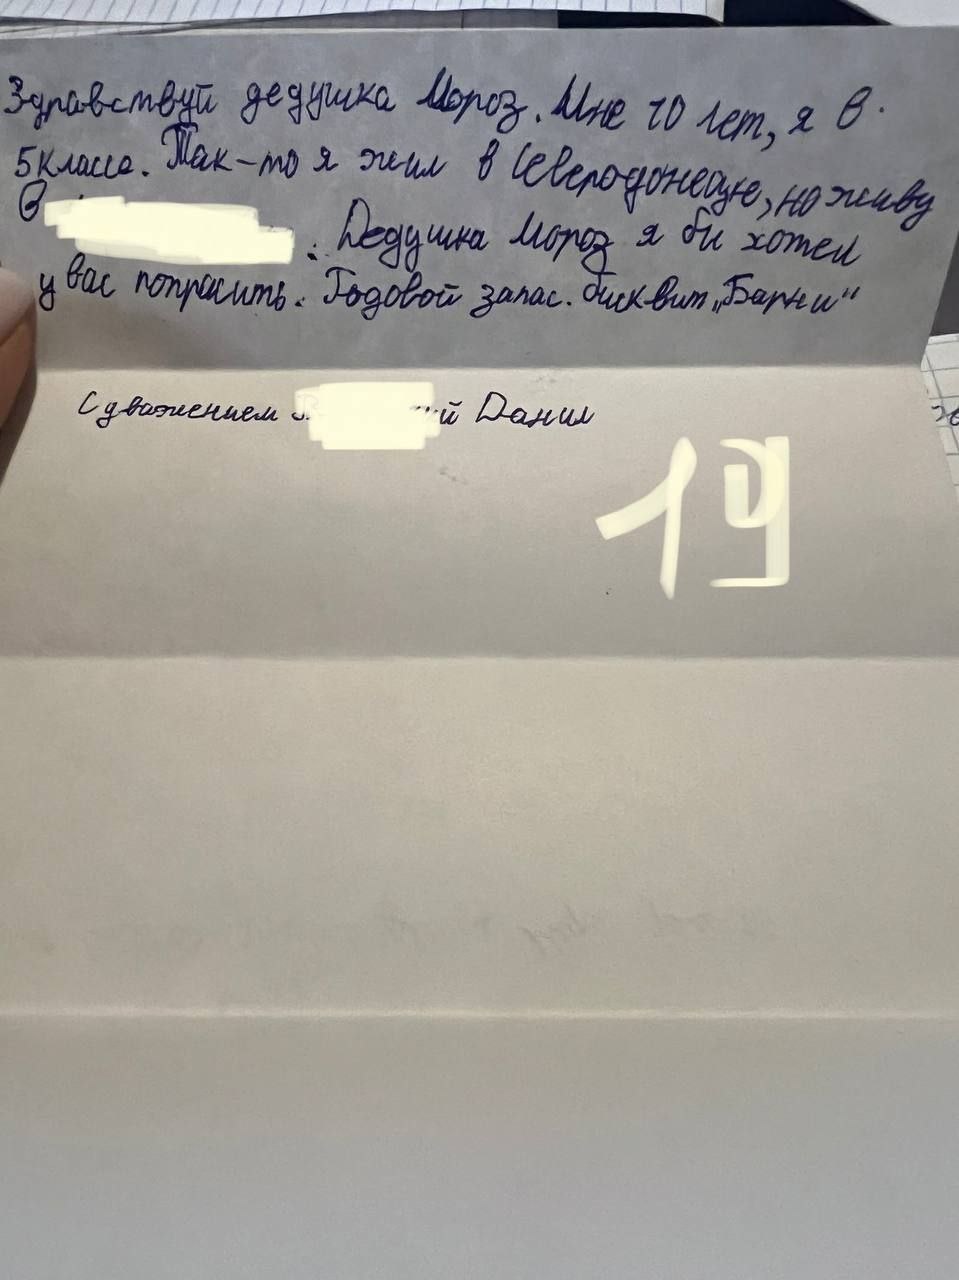 Здравствуй дедушка Мороз. Мне 10 лет, я в
5 классе. Так-то я жил в Северодонецке, но живу
в
. Дедушка Мороз я би хотел
у вас попросить. Годовой запас. бисквит „Барни“
С уважением й Данил
19